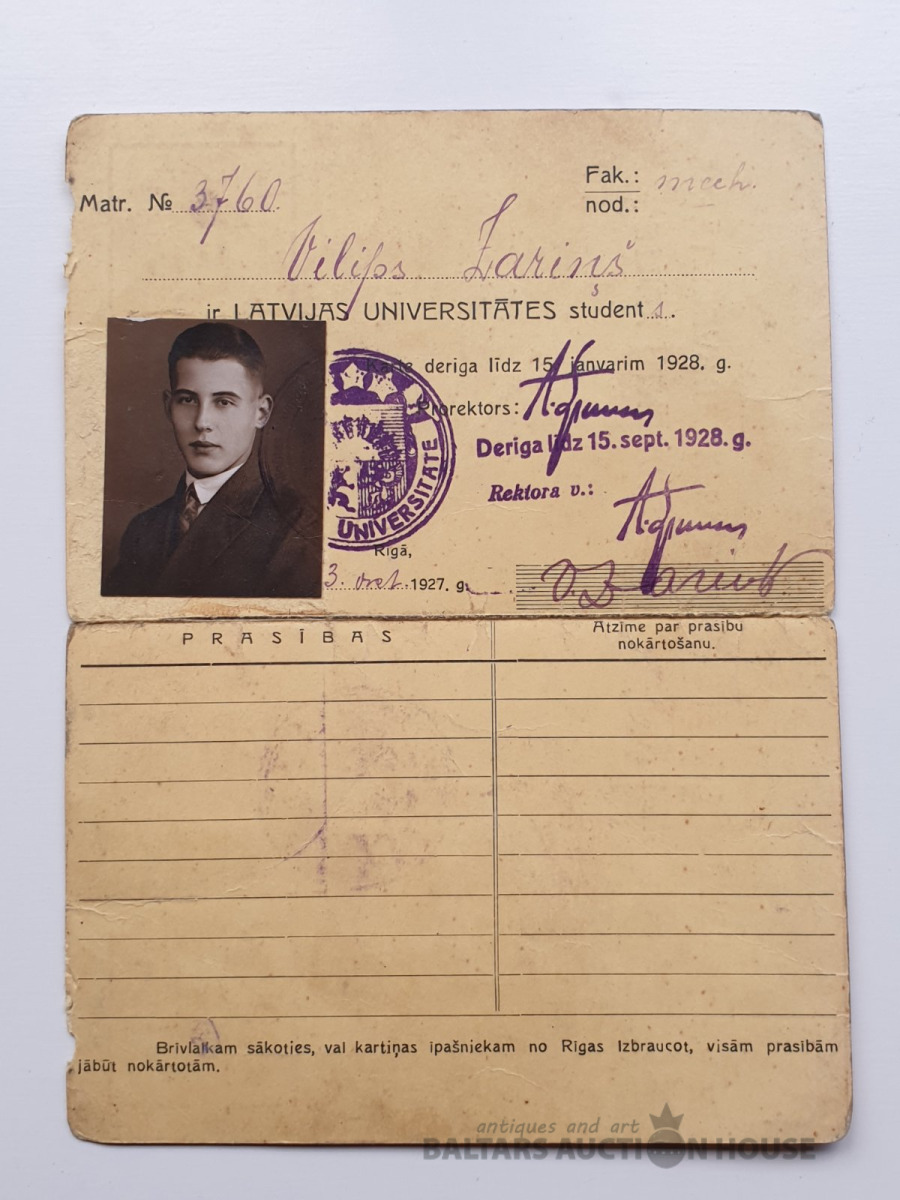 Matr. № 3760
Fak.: mech.
nod.:
Vilips Zariņš
ir LATVIJAS UNIVERSITĀTES students.
Karte derīga līdz 15. janvarim 1928. g.
Prorektors:
Derīga līdz 15. sept. 1928. g.
Rektora v.:
UNIVERSITĀTE
Rīgā,
3. 1927. g.
PRASĪBAS
Atzīme par prasību
nokārtošanu.
Brīvlaikam sākoties, vai kartiņas īpašniekam no Rīgas izbraucot, visām prasībām
jābūt nokārtotām.
antiques and art
BALTARS AUCTION HOUSE